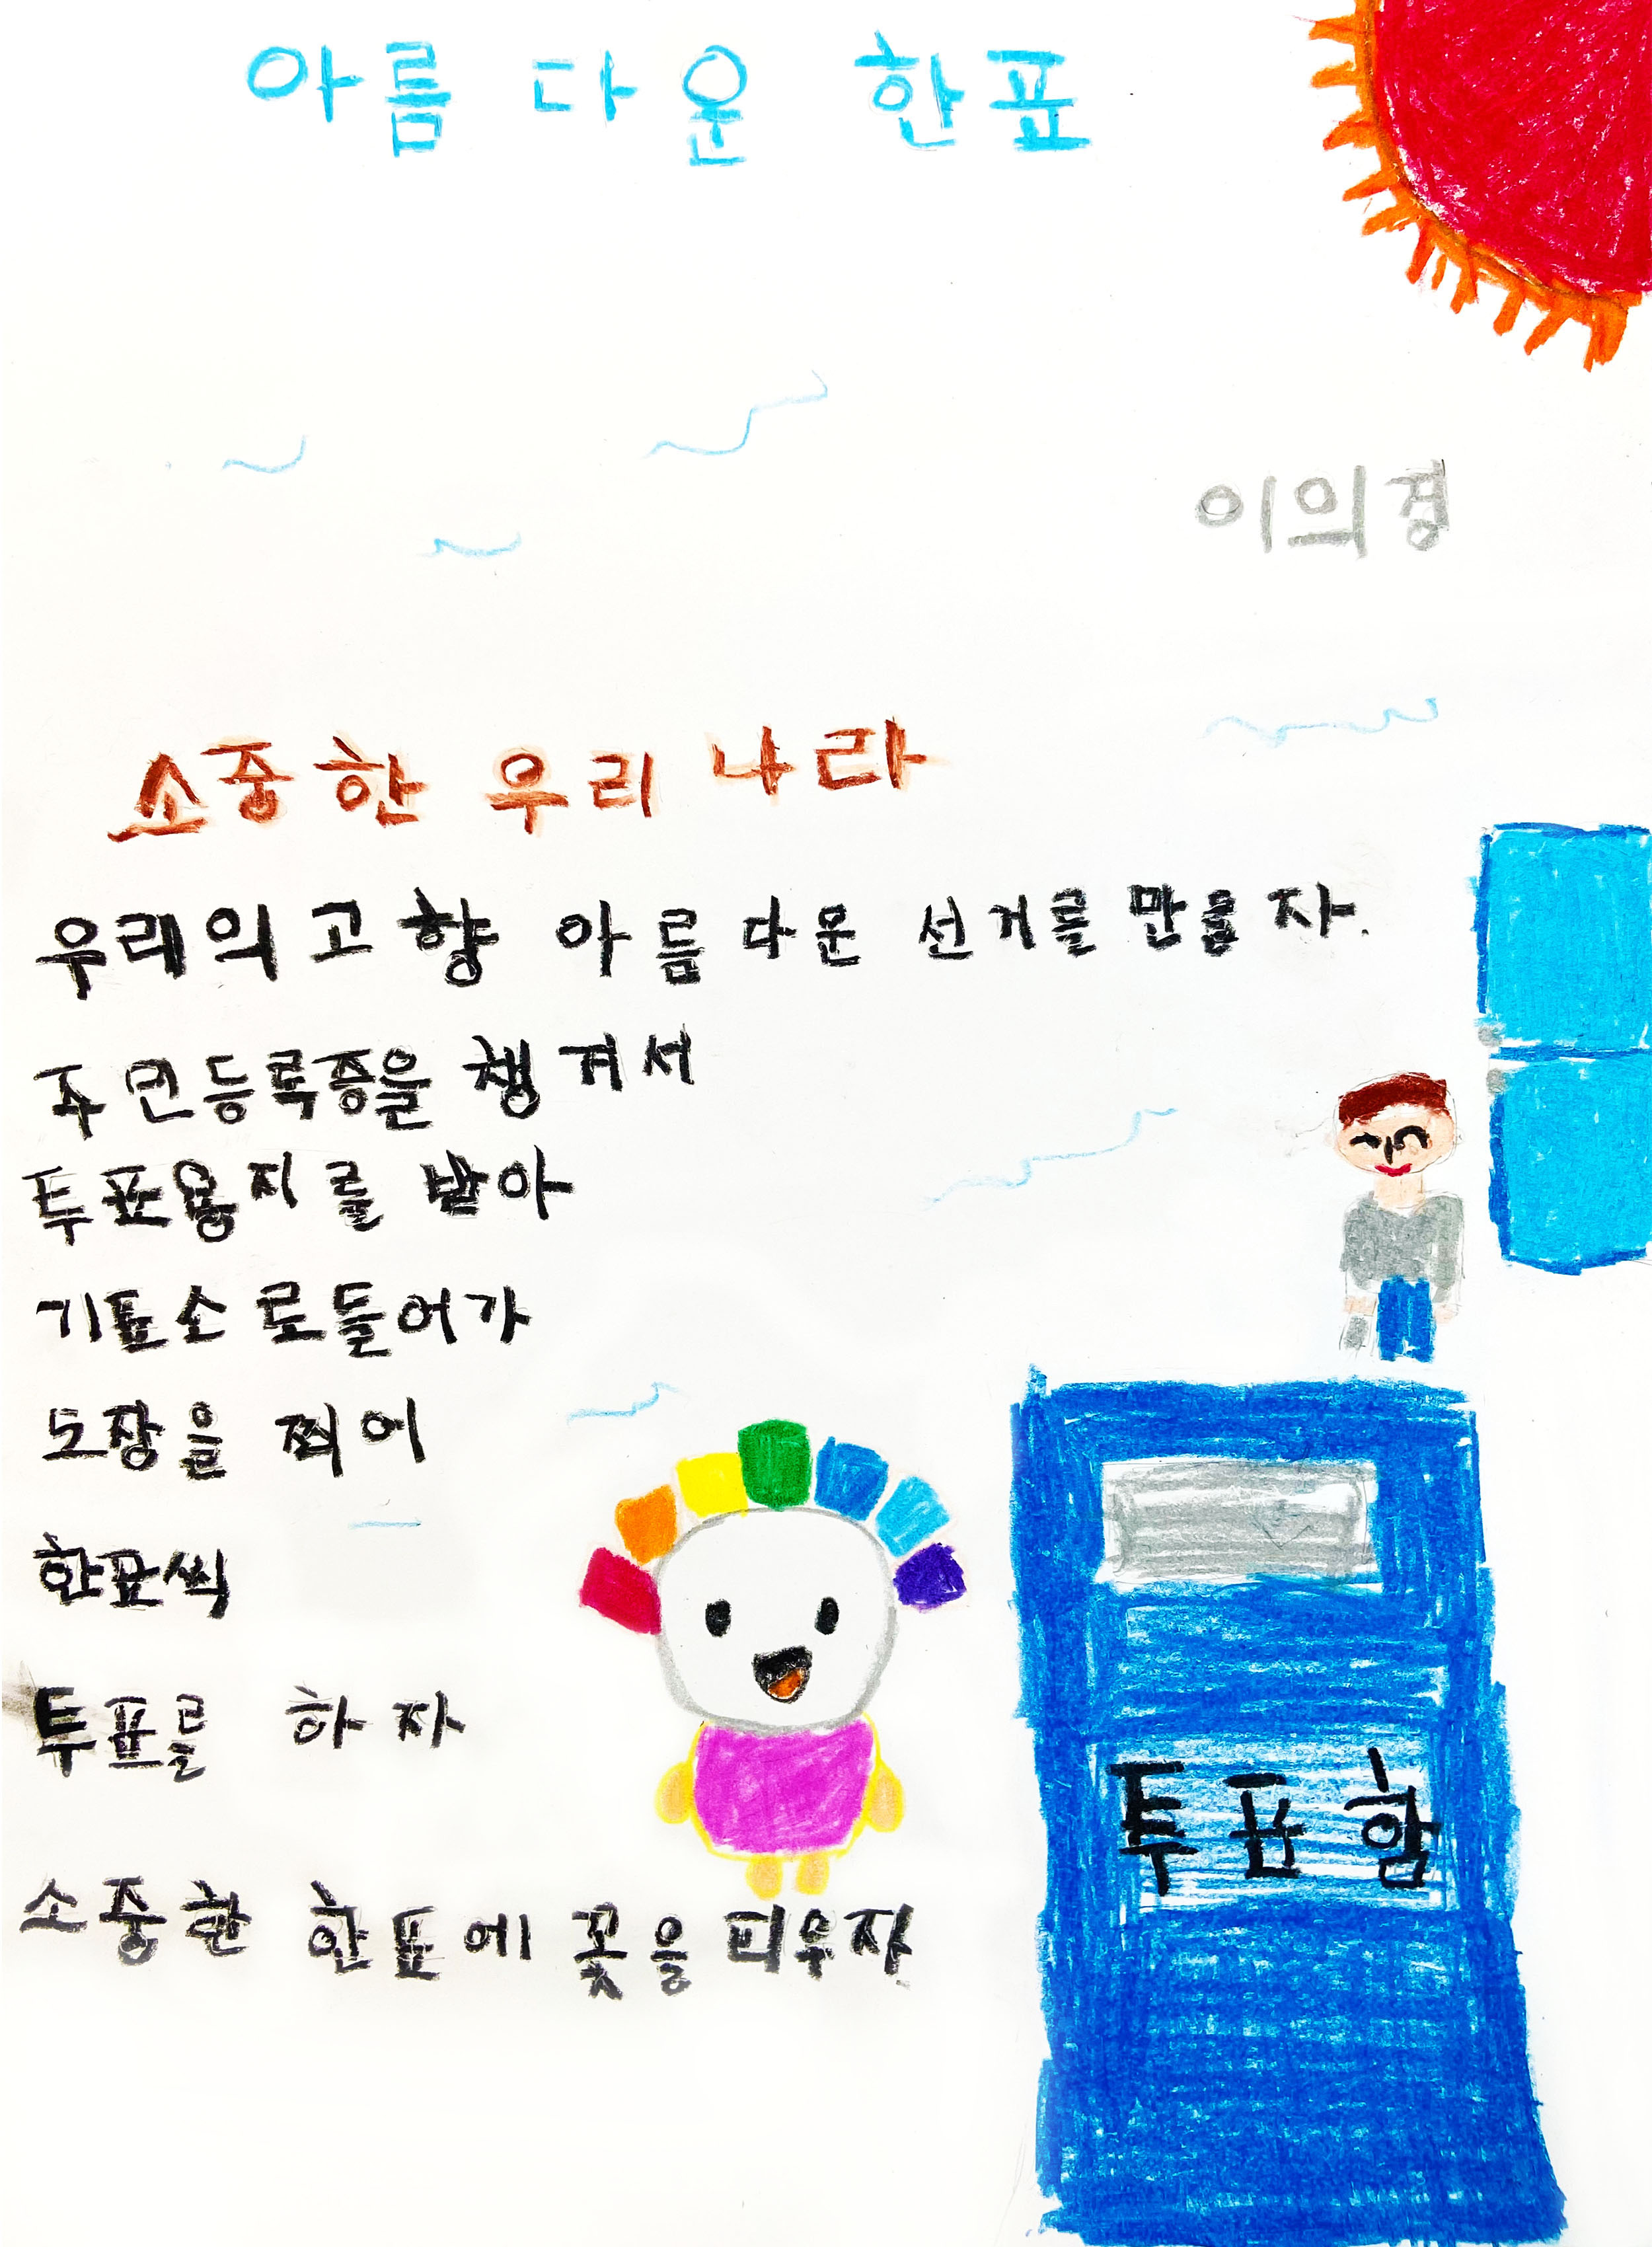 아름다운 한표
이의경
소중한 우리 나라
우리의 고향 아름다운 선거를 만들자.
주민등록증을 챙겨서
투표용지를 받아
기표소로 들어가
도장을 찍어
한표씩
투표를 하자
소중한 한표에 꽃을 피우자
투표함